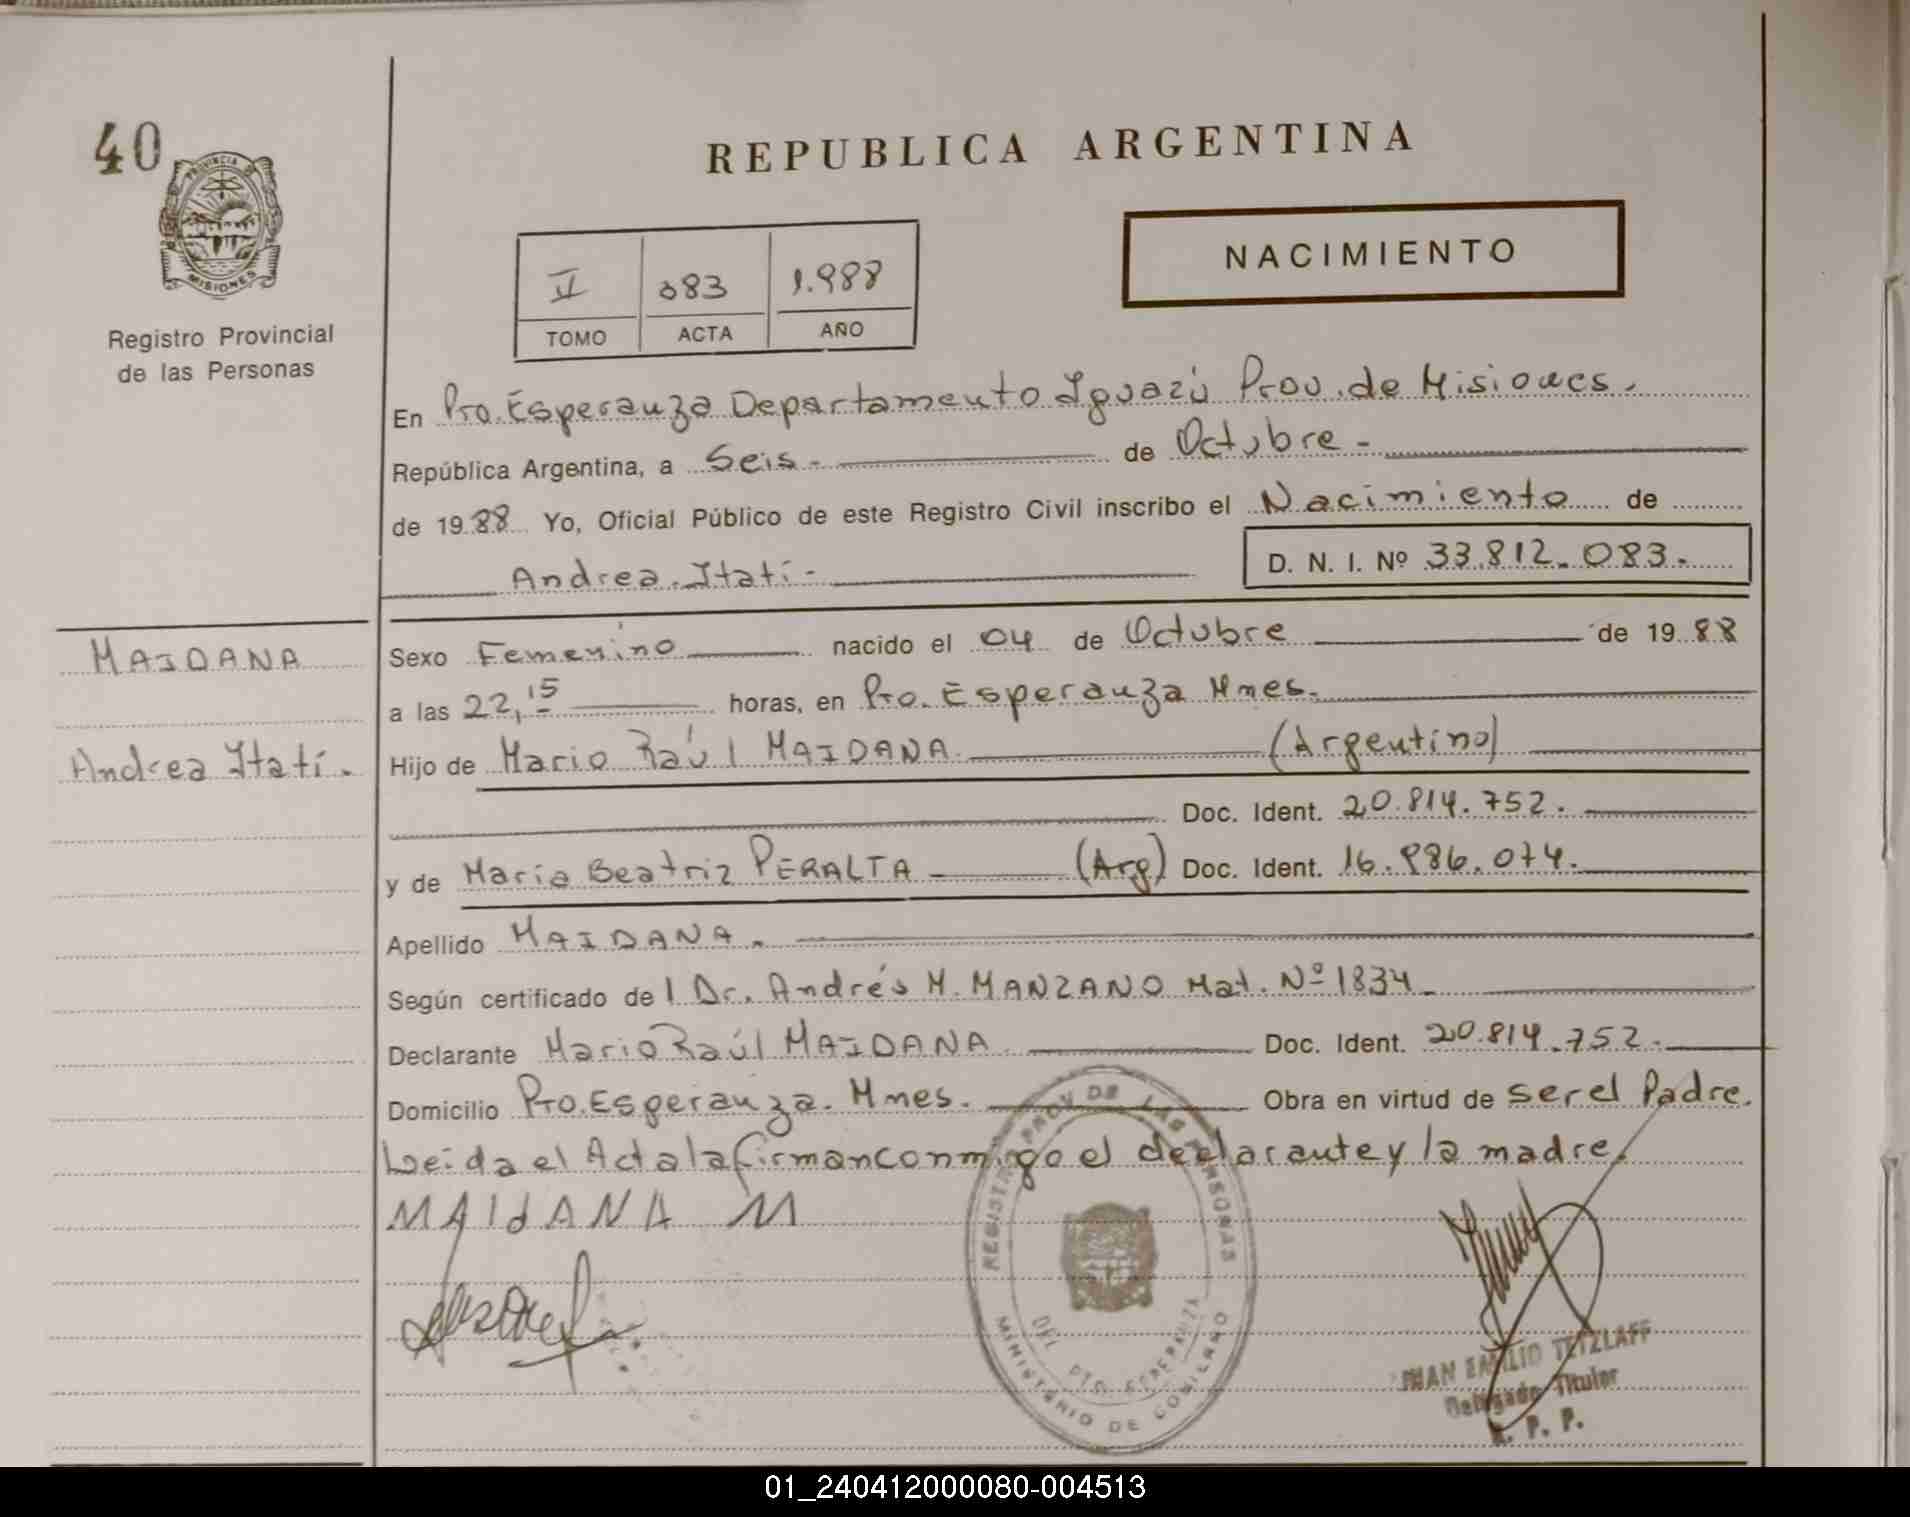 40
PROVINCIA DE
MISIONES
Registro Provincial
de las Personas
REPUBLICA ARGENTINA
NACIMIENTO
II 083 1.988
TOMO ACTA AÑO
En Pto. Esperanza Departamento Iguazú Prov. de Misiones.
República Argentina, a Seis.- de Octubre -
de 1988 Yo, Oficial Público de este Registro Civil inscribo el Nacimiento de
Andrea Itatí - D. N. I. Nº 33.812.083.
MAIDANA
Andrea Itatí.
Sexo Femenino nacido el 04 de Octubre de 1988
a las 22,15 horas, en Pto. Esperanza Mnes.
Hijo de Mario Raúl MAIDANA (Argentino)
Doc. Ident. 20.814.752.
y de María Beatriz PERALTA (Arg) Doc. Ident. 16.986.074.
Apellido MAIDANA.
Según certificado del Dr. Andrés M. MANZANO Mat. Nº 1834.
Declarante Mario Raúl MAIDANA Doc. Ident. 20.814.752.
Domicilio Pto. Esperanza. Mnes. Obra en virtud de ser el Padre.
Leída el Acta la firman conmigo el declarante y la madre.
MAIdANA M
REGISTRO PROV DE LAS PERSONAS
DEL. PTO. ESPERANZA
MINISTERIO DE GOBIERNO
JUAN EMILIO TETZLAFF
Delegado Titular
R. P. P.
01_240412000080-004513